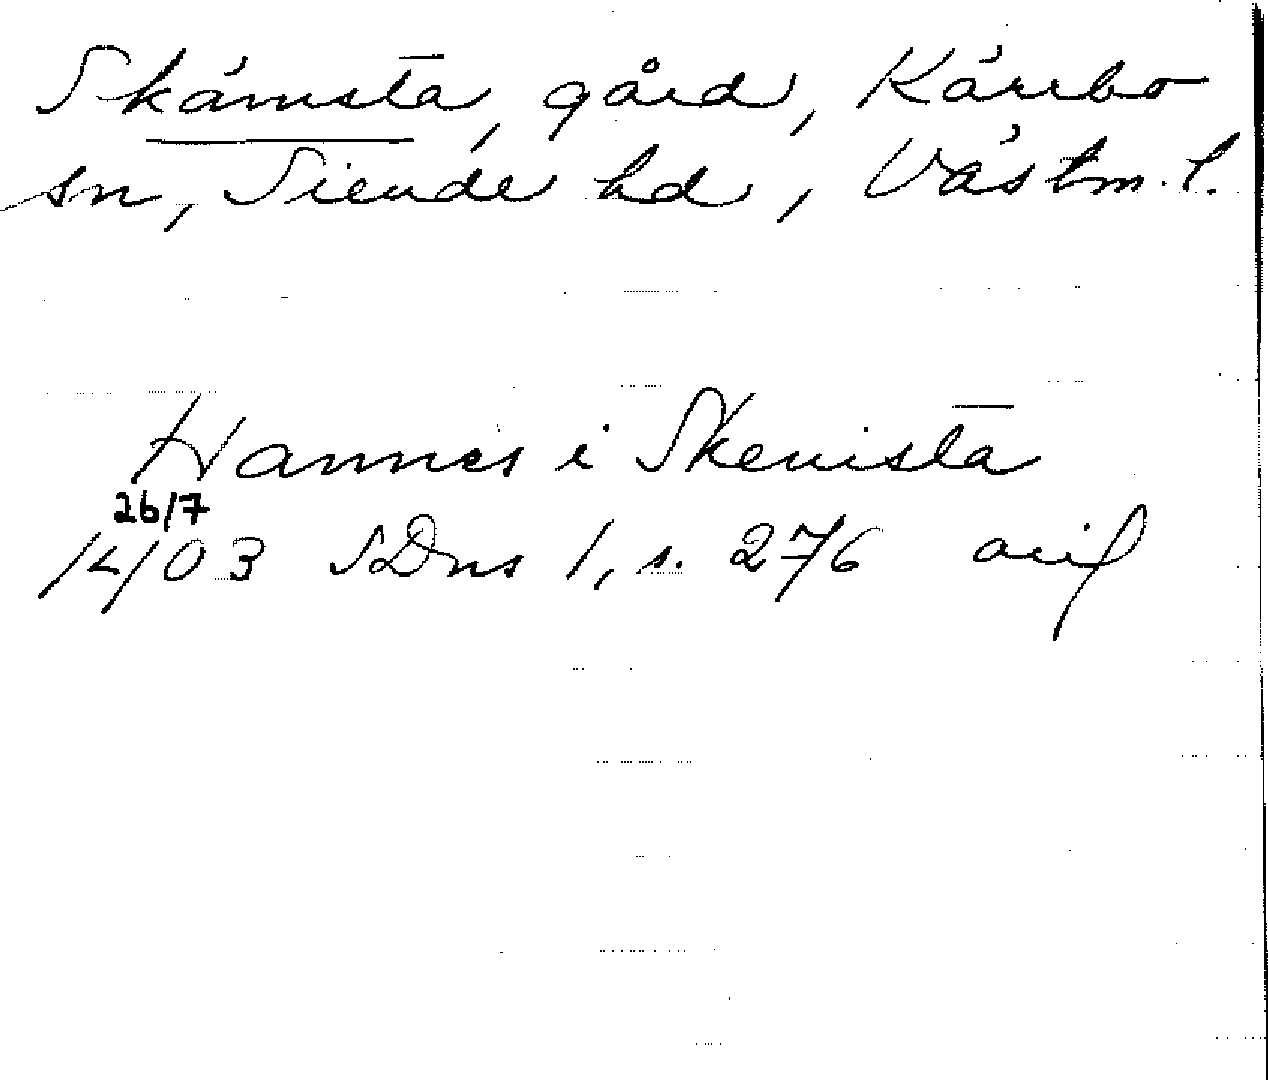 Skämsta, gård, Kärrbo
sn, Siende hd, Västm. l.
Hannes i Skemista
26/7
1403 SDns 1, s. 276 avif